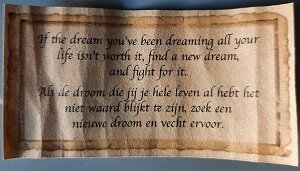 If the dream you've been dreaming all your
life isn't worth it, find a new dream,
and fight for it.
Als de droom die jij je hele leven al hebt het
niet waard blijkt te zijn, zoek een
nieuwe droom en vecht ervoor.